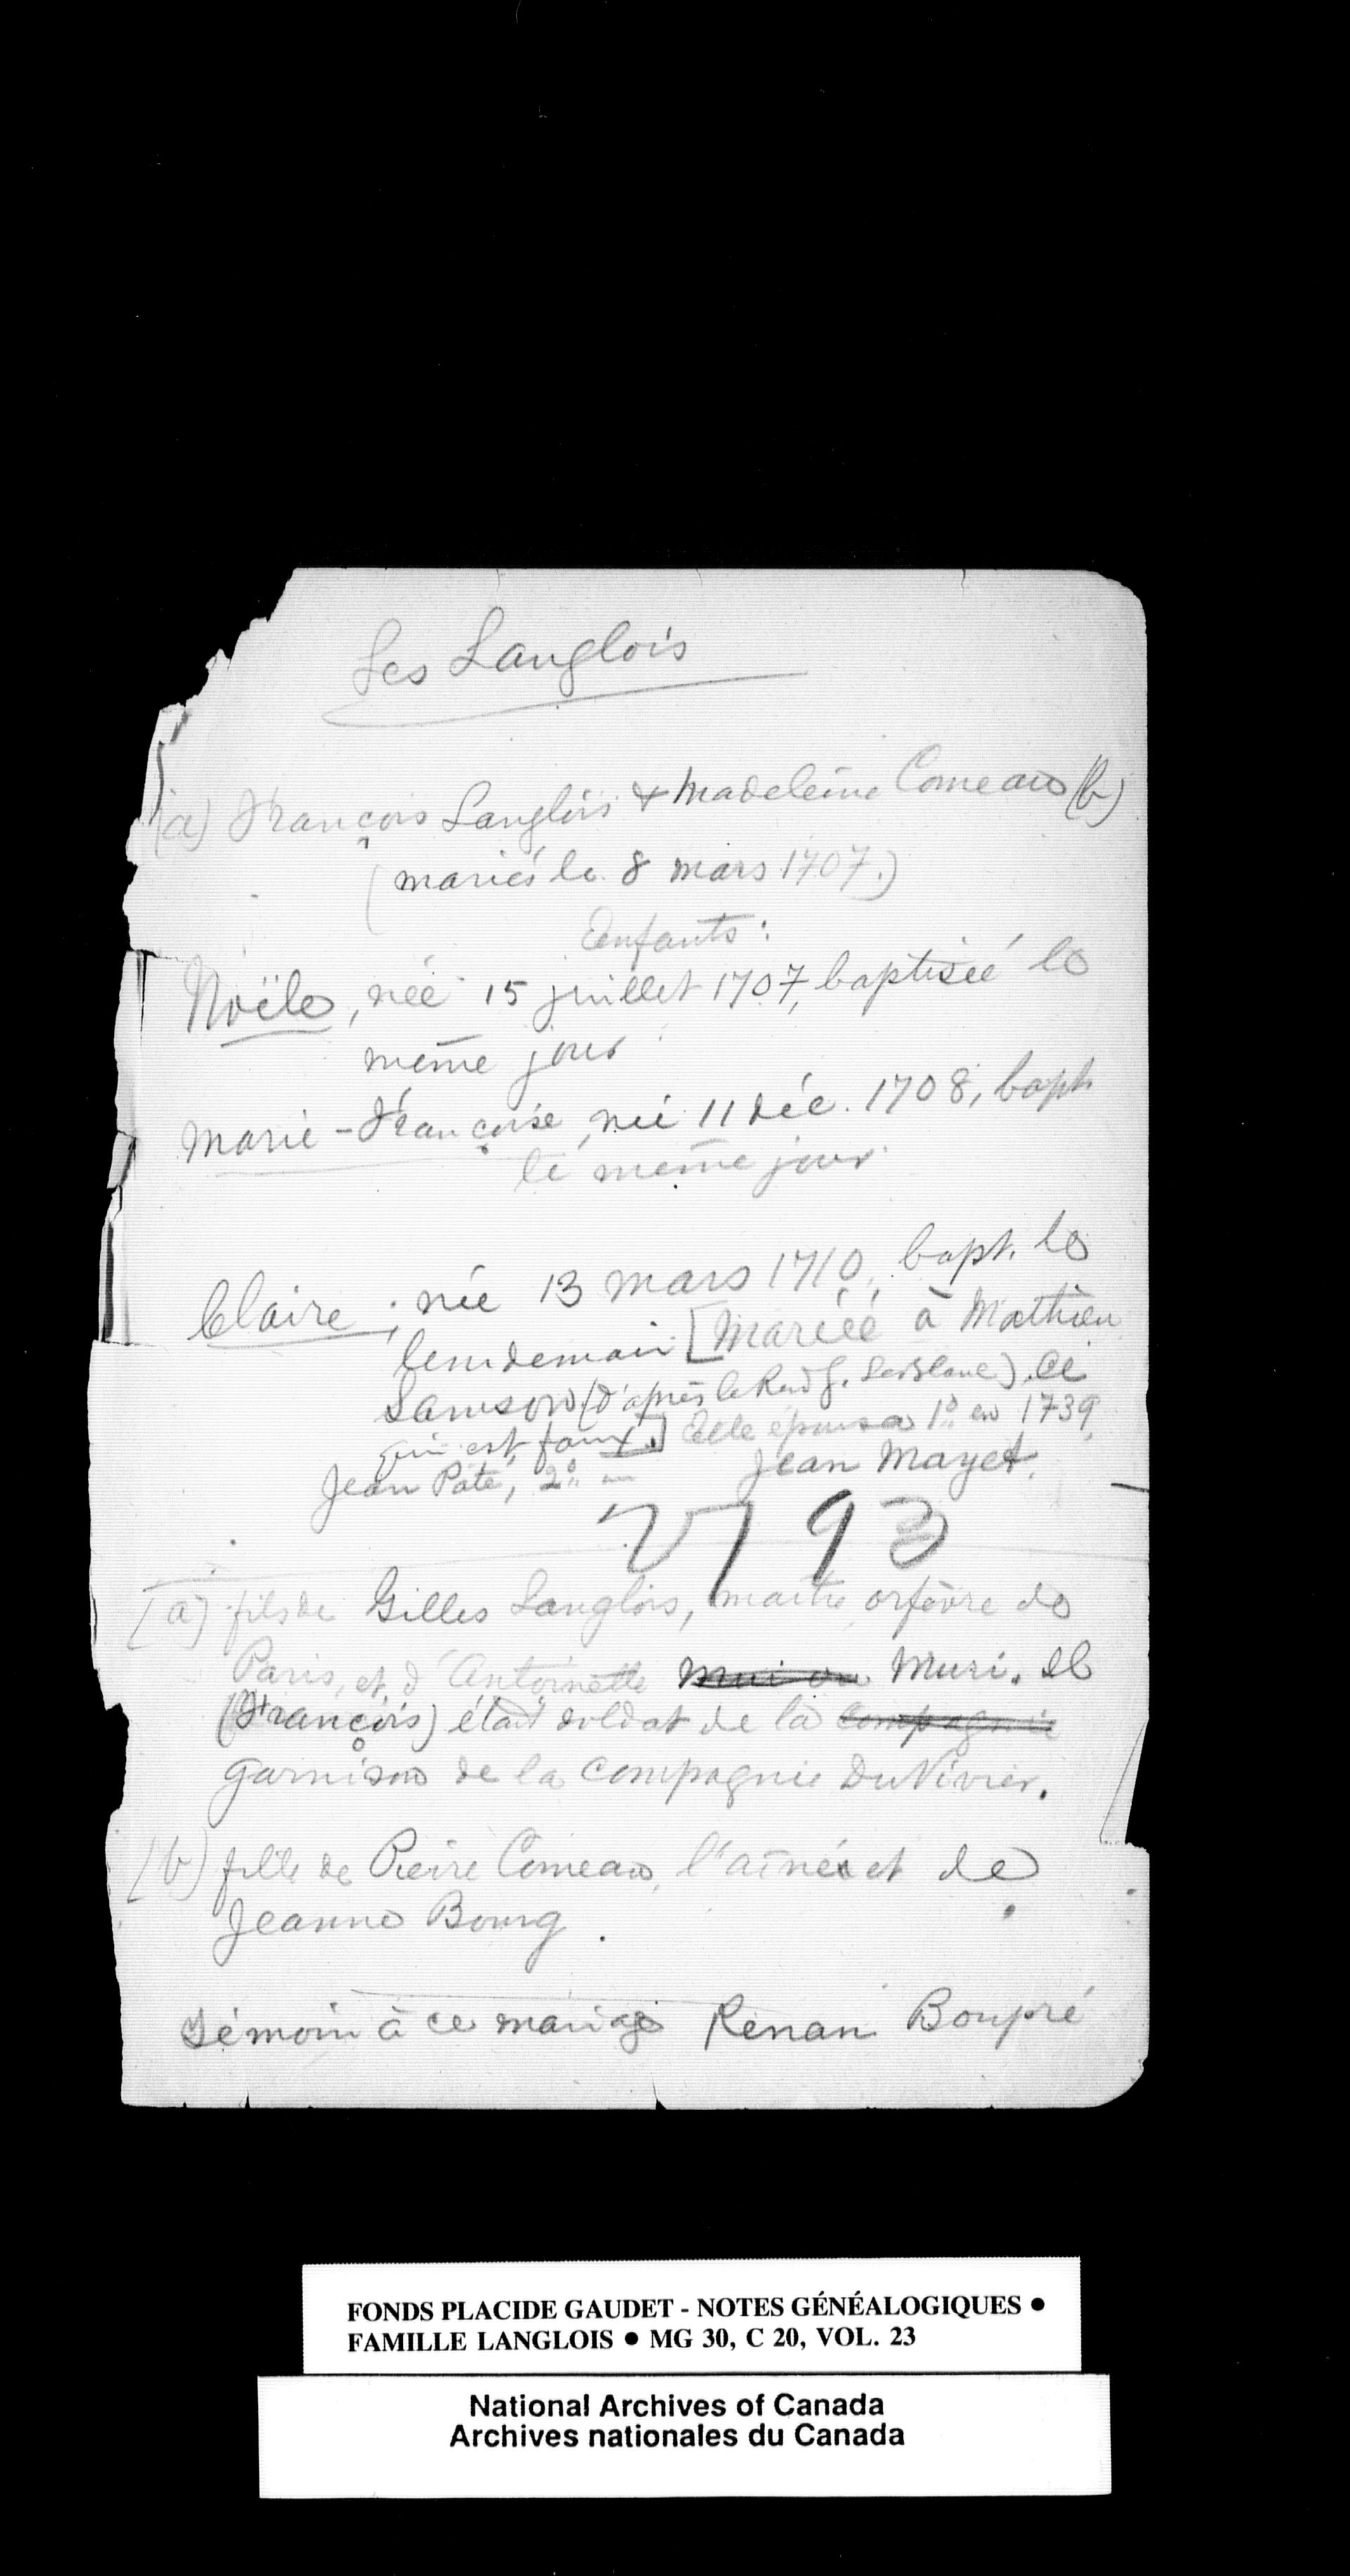 Les Langlois
(a) François Langlois & Madeleine Comeau (b)
(mariés le 8 mars 1707.)
Enfants:
Noële, née 15 juillet 1707, baptisée le
même jour
Marie-Françoise, née 11 déc. 1708, bapt.
le même jour
Claire, née 13 mars 1710, bapt. le
lendemain [Mariée à Mathieu
Samson (d'après le Rev. J. LeBlanc). Ce
qui est faux.] Elle épousa 1º en 1739,
Jean Pâté, 2º Jean Mayet.
2793
(a) fils de Gilles Langlois, maître orfèvre de
Paris, et d'Antoinette Muri. Il
(François) était soldat de la compagnie
garnison de la compagnie DuVivier.
(b) fille de Pierre Comeau, l'aîné et de
Jeanne Bourg.
Témoin à ce mariage Renan Boupré
FONDS PLACIDE GAUDET - NOTES GÉNÉALOGIQUES ●
FAMILLE LANGLOIS ● MG 30, C 20, VOL. 23
National Archives of Canada
Archives nationales du Canada